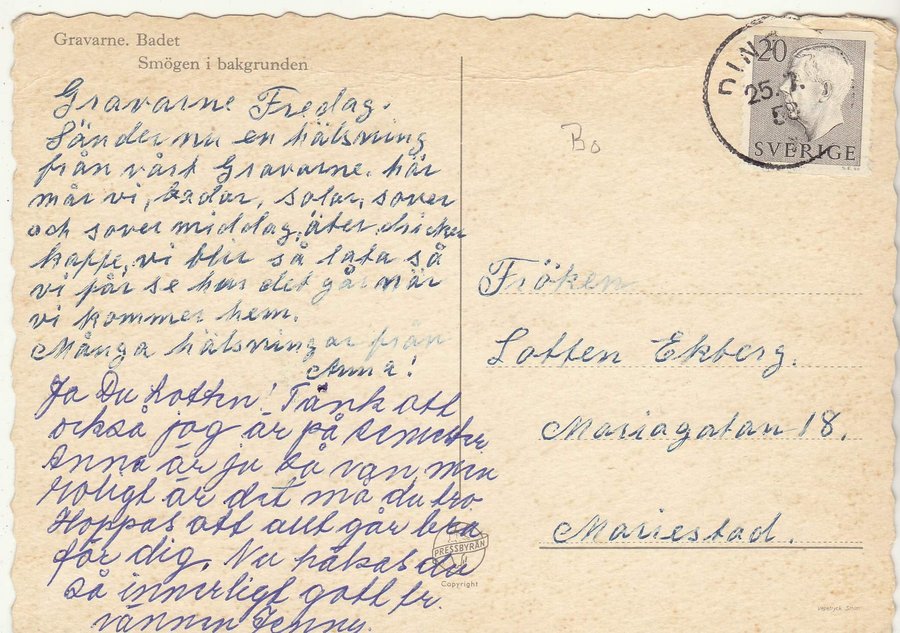 Gravarne. Badet
Smögen i bakgrunden
Gravarne Fredag.
Sänder nu en hälsning
från vårt Gravarne. här
mår vi, badar, solar, sover
och sover middag, äter dricker
kaffe, vi blir så lata så
vi får se hur det går när
vi kommer hem.
Många hälsningar från
Anna!
Ja Du Lotten! Tänk att
också jag är på semester
Anna är ju så van, men
roligt är det må du tro.
Hoppas att allt går bra
för dig. Nu hälsas du
så innerligt gott fr.
vännen Jenny.
20
DING
25.7.
58
SVERIGE
Bo
Fröken
Lotten Ekberg.
Mariagatan 18.
Mariestad.
PRESSBYRÅN
Copyright